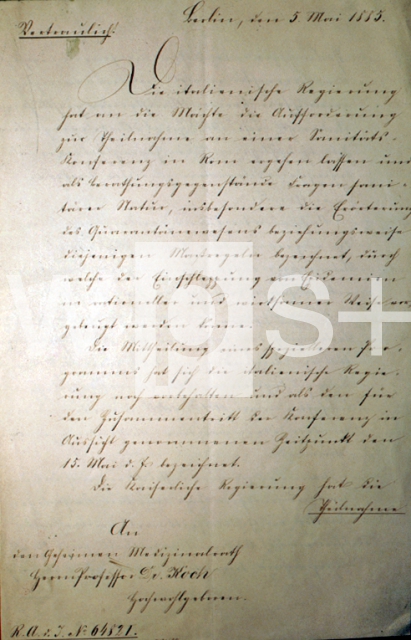 Berlin, den 5. Mai 1885.
Vertraulich.
Die italienische Regierung
hat an die Mächte die Aufforderung
zur Theilnahme an einer Sanitäts-
Konferenz in Rom ergehen lassen und
als Berathungsgegenstände Fragen sani-
tärer Natur, insbesondere die Erörterung
des Quarantänewesens beziehungsweise
diejenigen Maßregeln bezeichnet, durch
welche der Einschleppung von Epidemien
in rationeller und wirksamer Weise vor-
gebeugt werden könne.
Die Mittheilung eines spezielleren Pro-
gramms hat sich die italienische Regie-
rung noch vorbehalten und als den für
den Zusammentritt der Konferenz in
Aussicht genommenen Zeitpunkt den
15. Mai d. J. bezeichnet.
Die Kaiserliche Regierung hat die
Theilnahme
An
den Geheimen Medizinalrath
Herrn Professor Dr. Koch
Hochwohlgeboren.
R.A.d.J. No 6482 I.